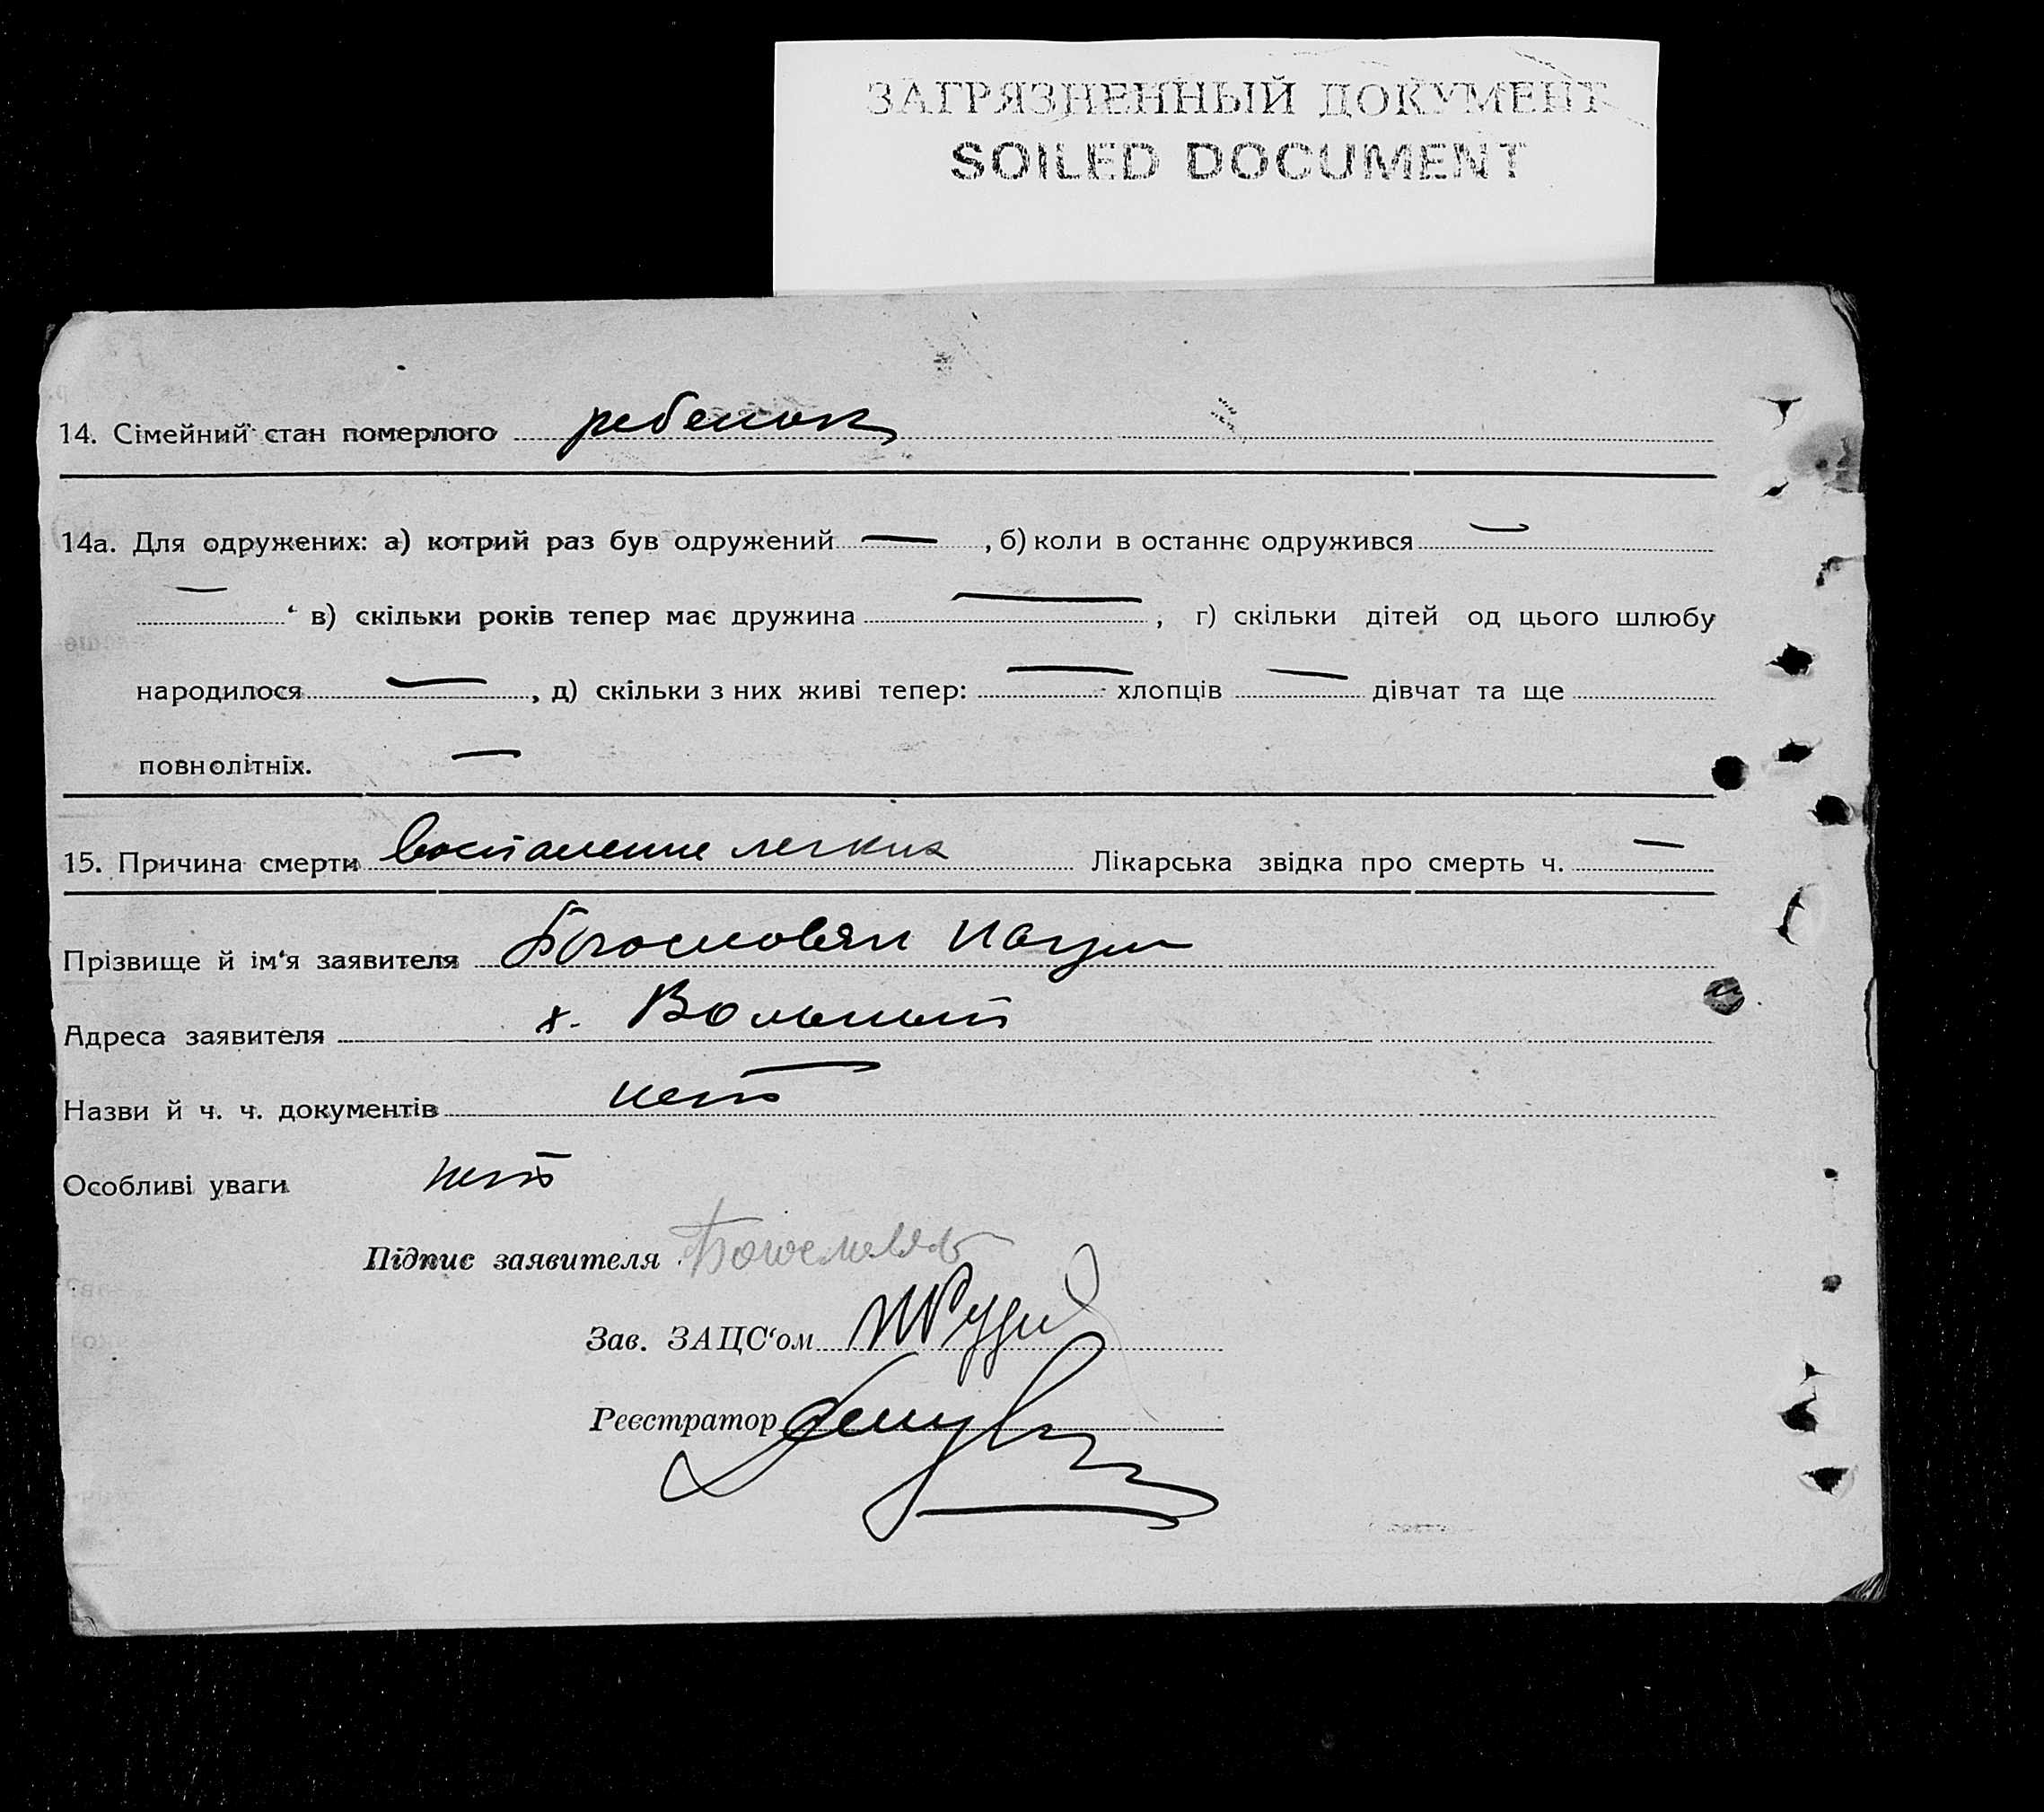 ЗАГРЯЗНЕННЫЙ ДОКУМЕНТ
SOILED DOCUMENT
14. Сімейний стан померлого ребенок
14а. Для одружених: а) котрий раз був одружений — , б) коли в останнє одружився —
— ‘ в) скільки років тепер має дружина — , г) скільки дітей од цього шлюбу
народилося — , д) скільки з них живі тепер: — хлопців — дівчат та ще
повнолітніх. —
15. Причина смерти воспаление легких Лікарська звідка про смерть ч. —
Прізвище й ім‘я заявителя Наум
Адреса заявителя х. Вольный
Назви й ч. ч. документів нет
Особливі уваги нет
Підпис заявителя
Зав. ЗАЦС‘ом
Реєстратор